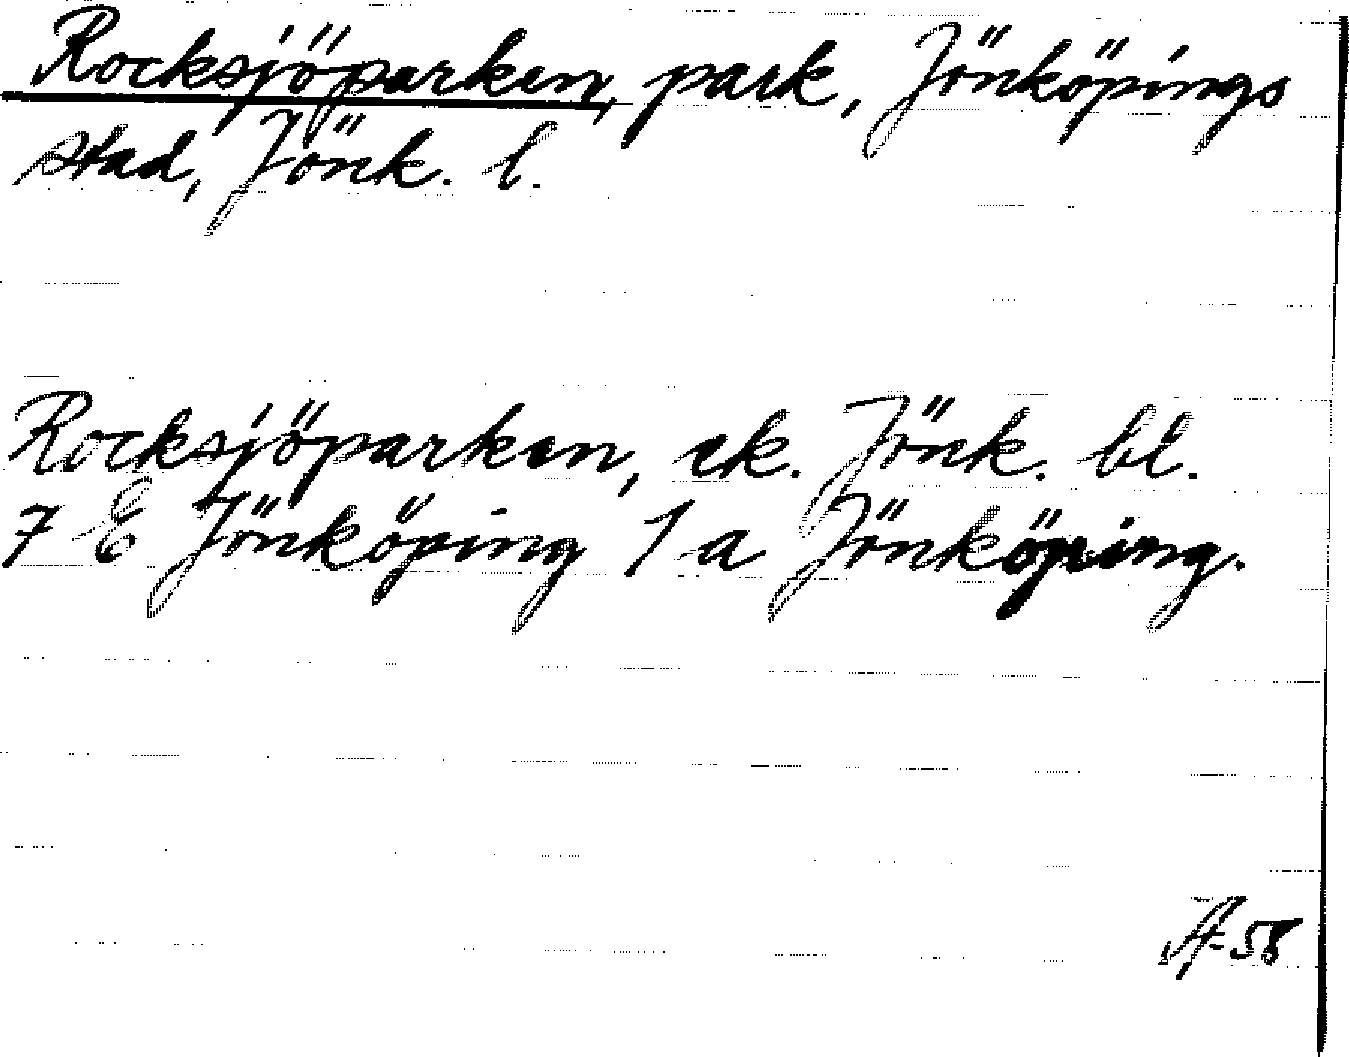 Rocksjöparken, park, Jönköpings
stad, Jönk. l.
Rocksjöparken, ek. Jönk. bl.
7 E Jönköping 1 a Jönköping.
58